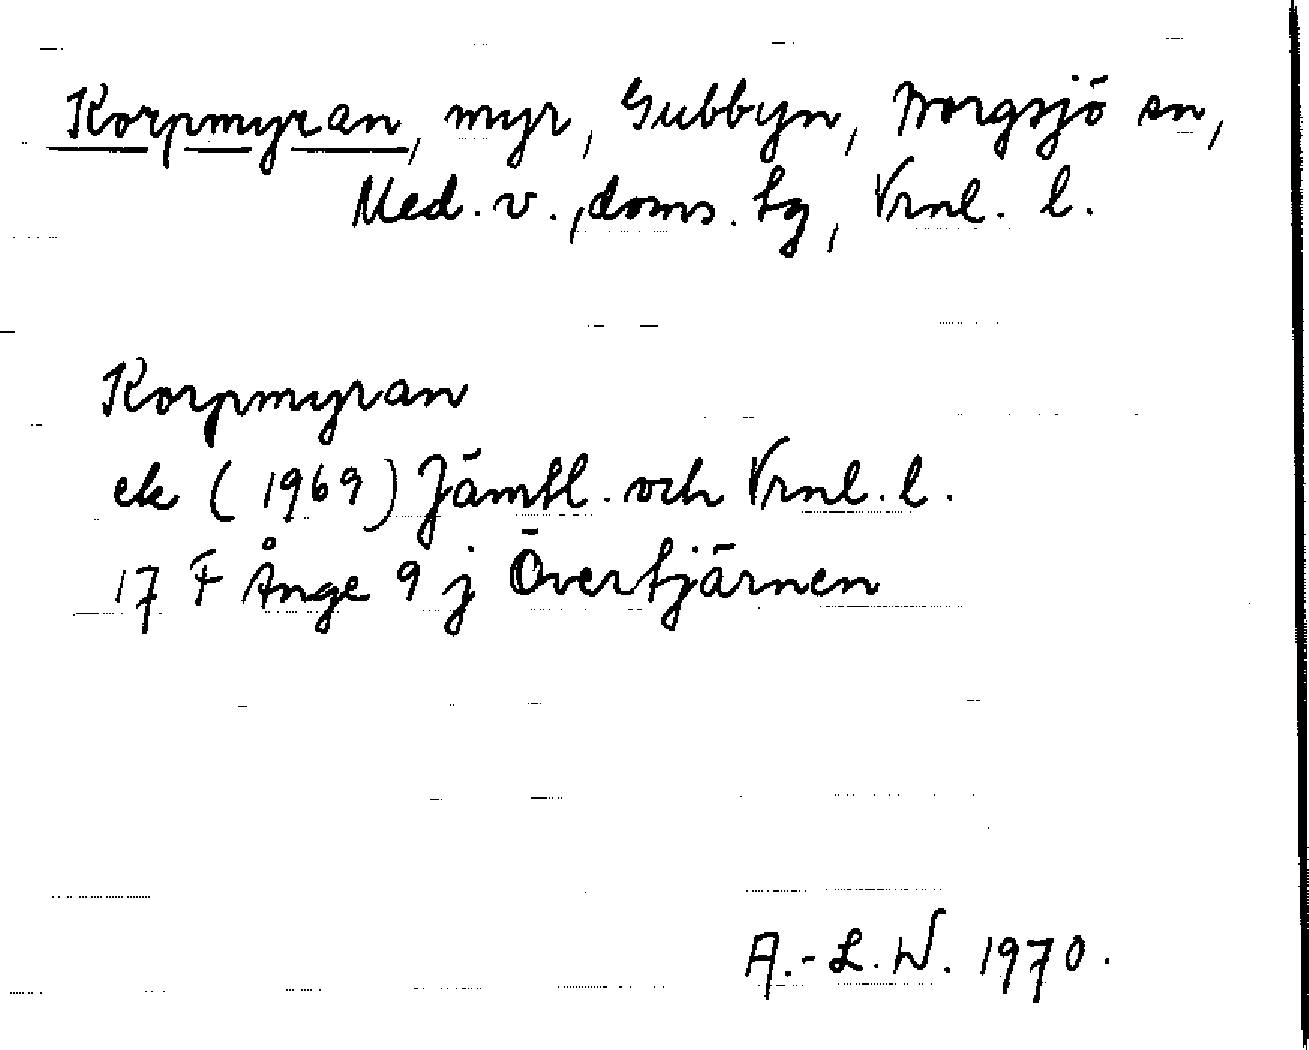 Korpmyran, myr, Gubbyn, Borgsjö sn,
Med. v., doms. tg, Vrnl. l.
Korpmyran
ek (1969) Jämtl. och Vrnl. l.
17 F Ånge 9 j Övertjärnen
A.-L.W. 1970.